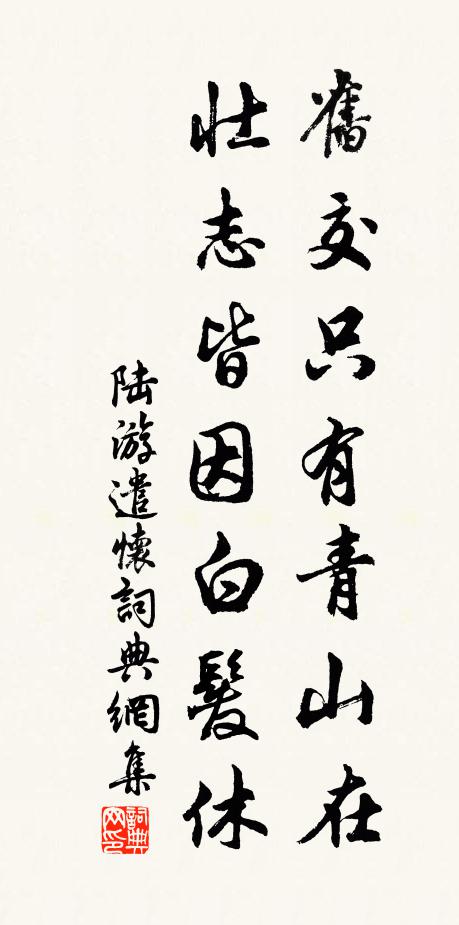 舊交只有青山在
壯志皆因白髮休
陆游遣懷詞典網集
詞典网印